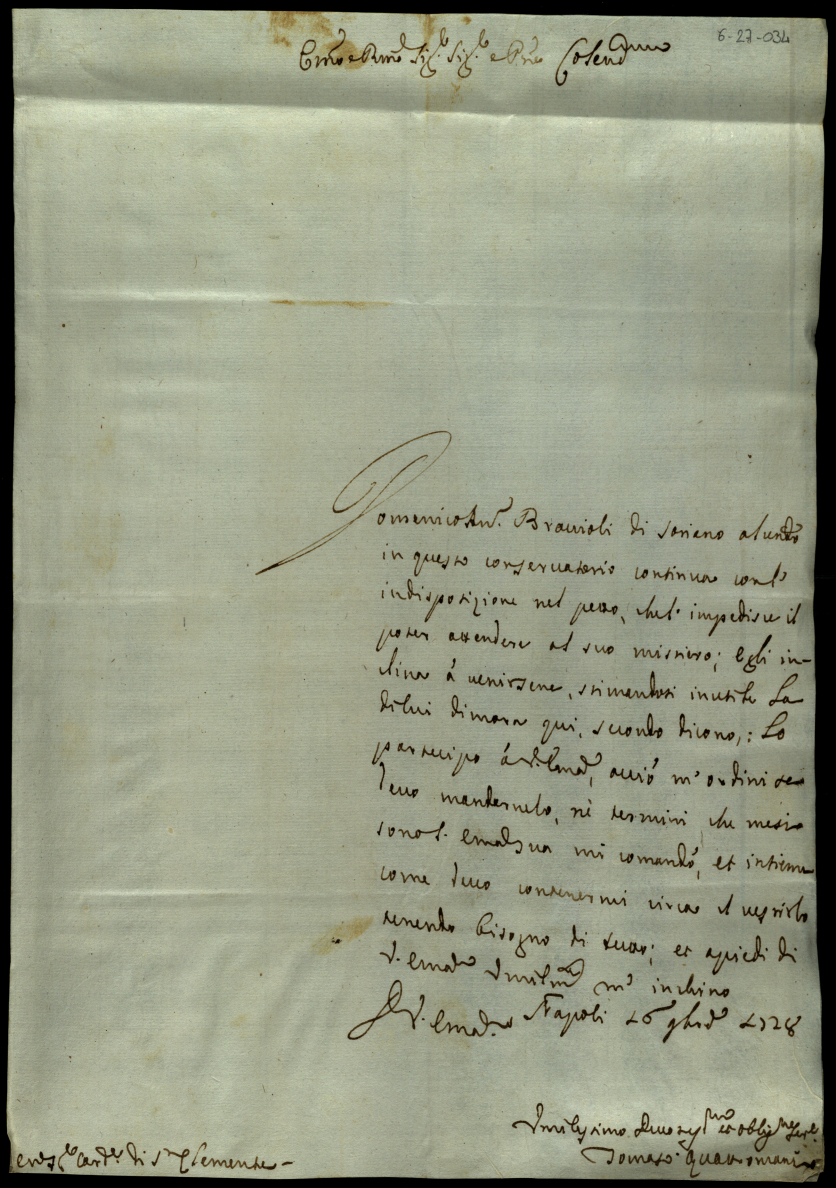 6-27-034
Em̃o e Rm̃o Sig.r Sig.r e Pñe Colend.mo
Domenico Ant.o Bravioli di Soriano alunno
in questo conservatorio continua con l'
indisposizione nel petto, che l' impedisce il
poter attendere al suo mistiero; Egli in-
clina á venirsene, stimandosi inutile La
di lui dimora qui, secondo dicono,: Lo
partecipo á V. Em̃a, acció m' ordini se
devo mandarnelo, nè termini, che mesi
sono l' Em̃a Sua mi comandó, et insieme
come devo contenermi circa il vestirlo
tenendo bisogno di tutto; et a piedi di
V. Em̃a Umilm.te m' inchino
D V. Em̃a Napoli 16 9bre 1728
Umilissimo Devotis.mo et Obblig.mo Ser.e
Tomaso Quattromani
Card.e di S.n Clemente -